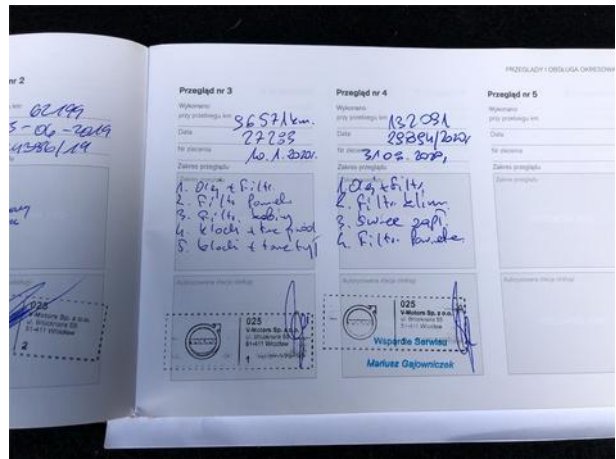 PRZEGLĄDY I OBSŁUGA OKRESOWA
nr 2
62199
-06-2019
/19
2
Przegląd nr 3
Wykonano
przy przebiegu km 96571km.
Data 27293
Nr zlecenia 10.1.2020r.
Zakres przeglądu
1. Olej + Filtr.
2. Filtr powiet.
3. Filtr. kabiny
4. klocki + tarc przód
5. klocki + tarc tył
Autoryzowana stacja obsługi
025
V-Motors Sp. z o.o.
51-411 Wrocław
1
Przegląd nr 4
Wykonano
przy przebiegu km 132091
Data
Nr zlecenia
Zakres przeglądu
1. Olej + Filtr.
2. Filtr klim.
3. Świec zapł.
4. Filtr. powietrz
Autoryzowana stacja obsługi
025
V-Motors Sp. z o.o.
51-411 Wrocław
Wsparcie Serwisu
Mariusz Gajowniczek
Przegląd nr 5
Wykonano
przy przebiegu km
Data
Nr zlecenia
Zakres przeglądu
Autoryzowana stacja obsługi